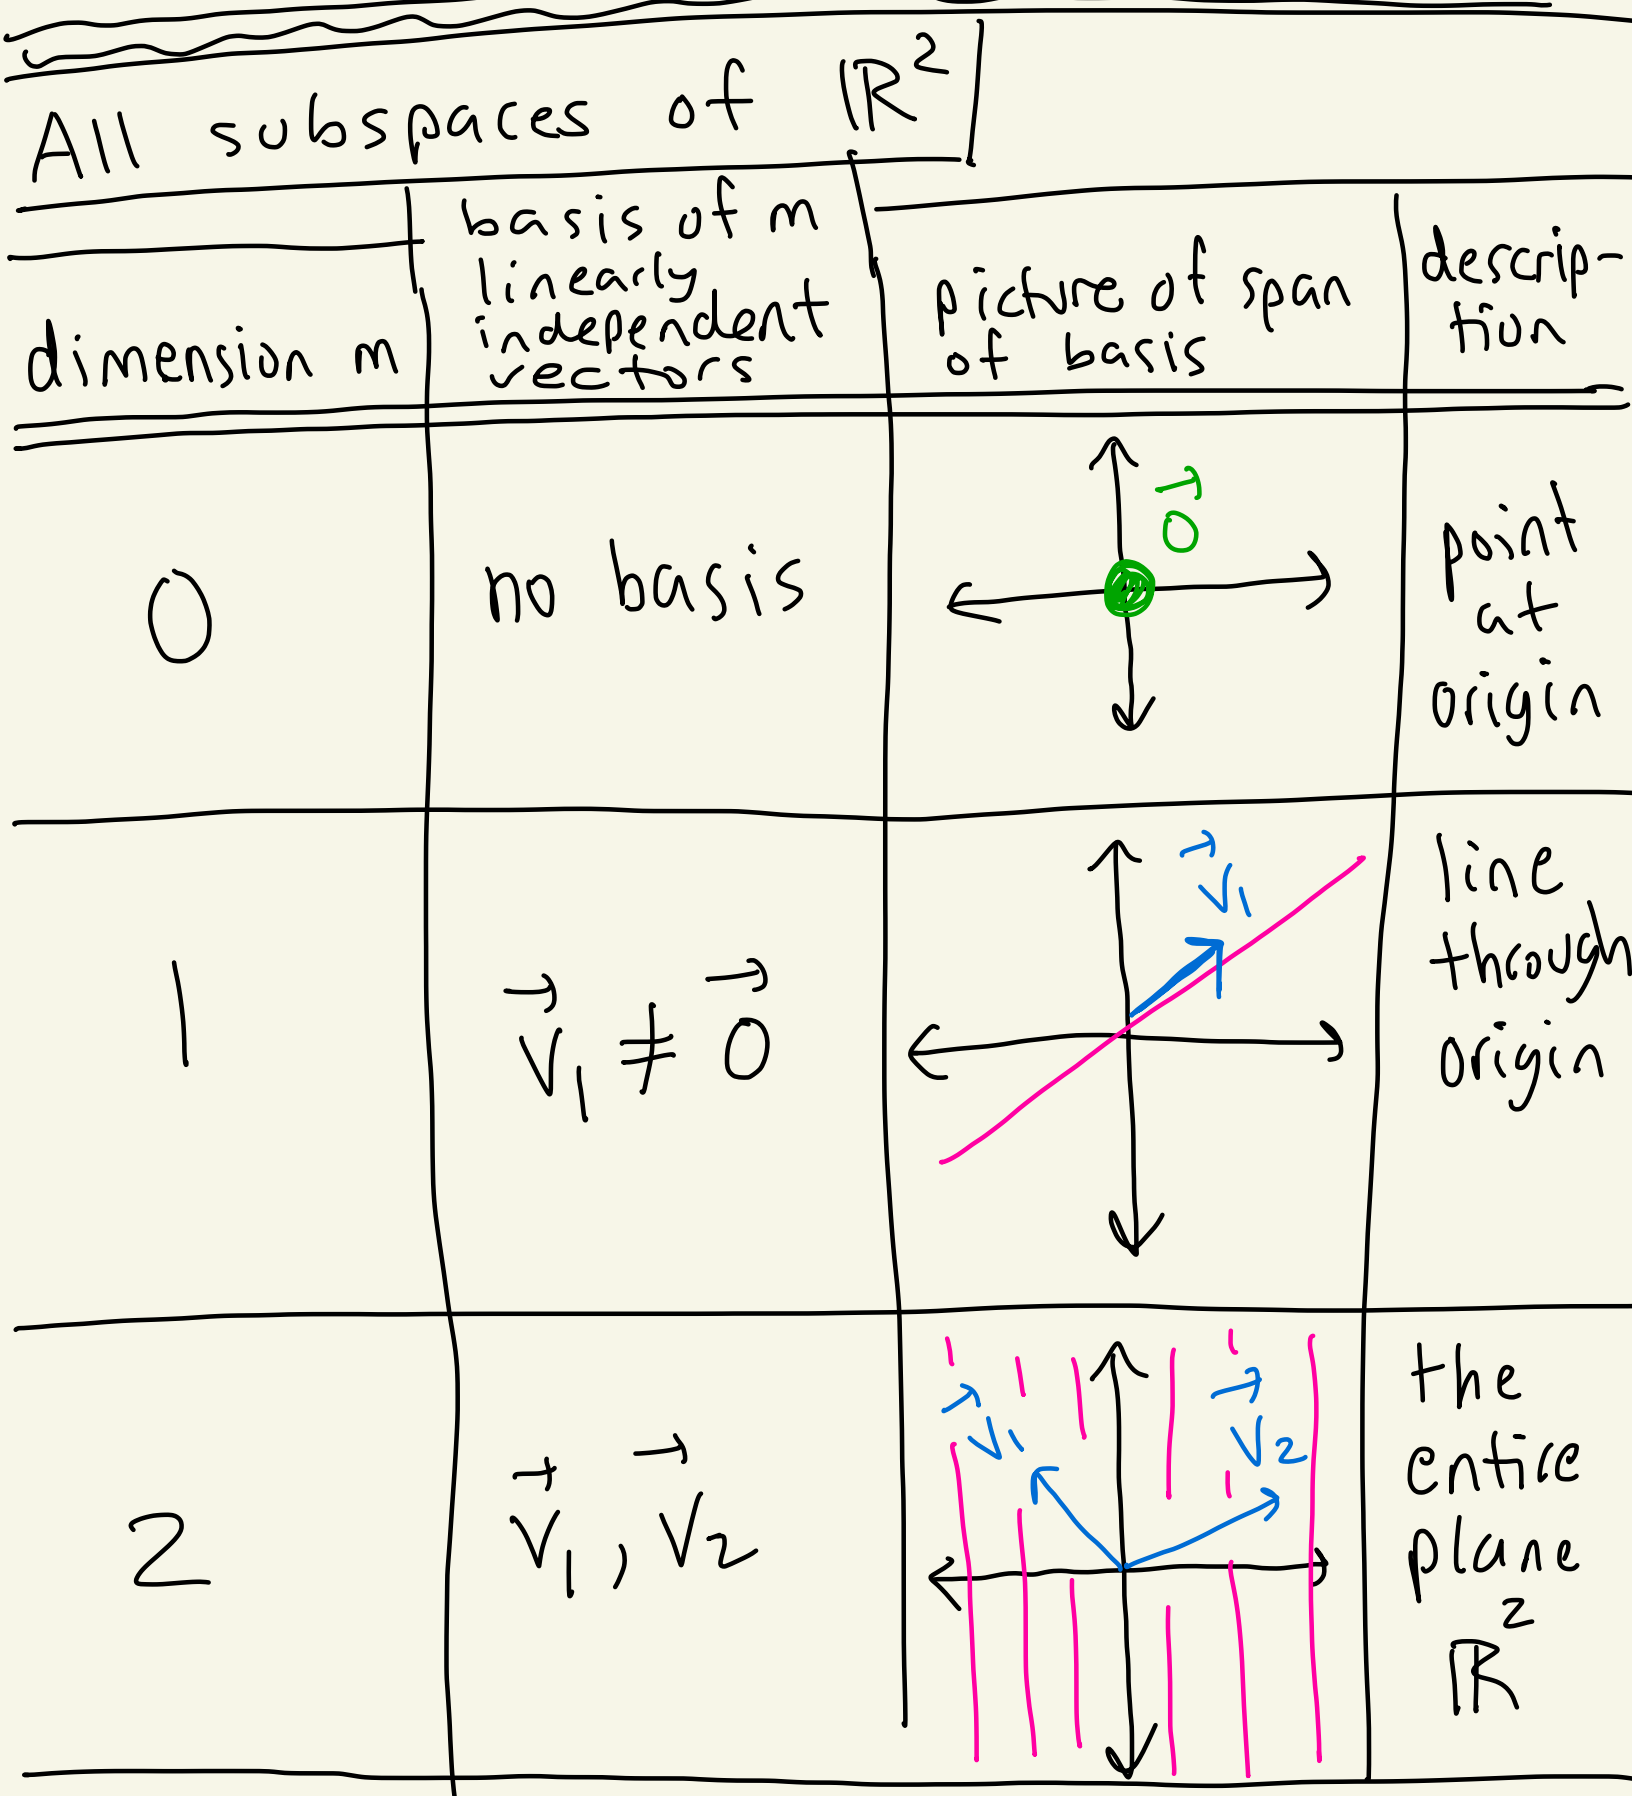 All subspaces of ℝ²
dimension m
basis of m
linearly
independent
vectors
picture of span
of basis
descrip-
tion
0
no basis
0⃗
point
at
origin
1
v⃗₁ ≠ 0⃗
v⃗₁
line
through
origin
2
v⃗₁, v⃗₂
v⃗₁
v⃗₂
the
entire
plane
ℝ²